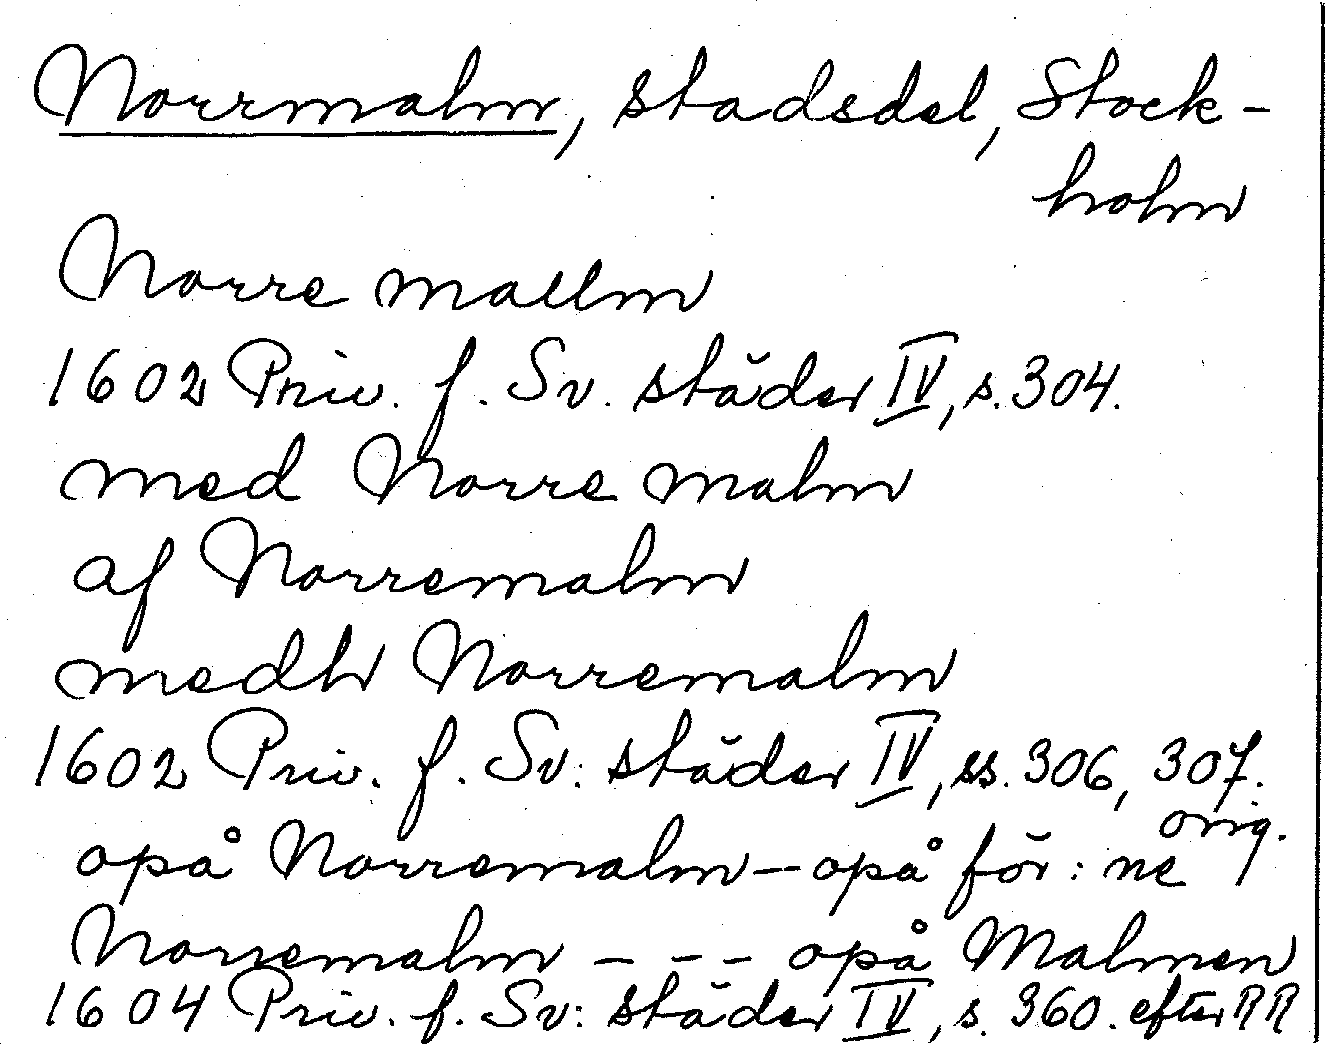 Norrmalm, stadsdel, Stock-
holm
Norre mallm
1602 Priv. f. Sv. städer IV, s. 304.
med Norre malm
af Norremalm
medh Norremalm
1602 Priv. f. Sv: städer IV, ss. 306, 307.
orig.
opå Norremalm — opå för: ne
Norremalm - - - opå Malmen
1604 Priv. f. Sv: städer IV, s. 360. efter RR